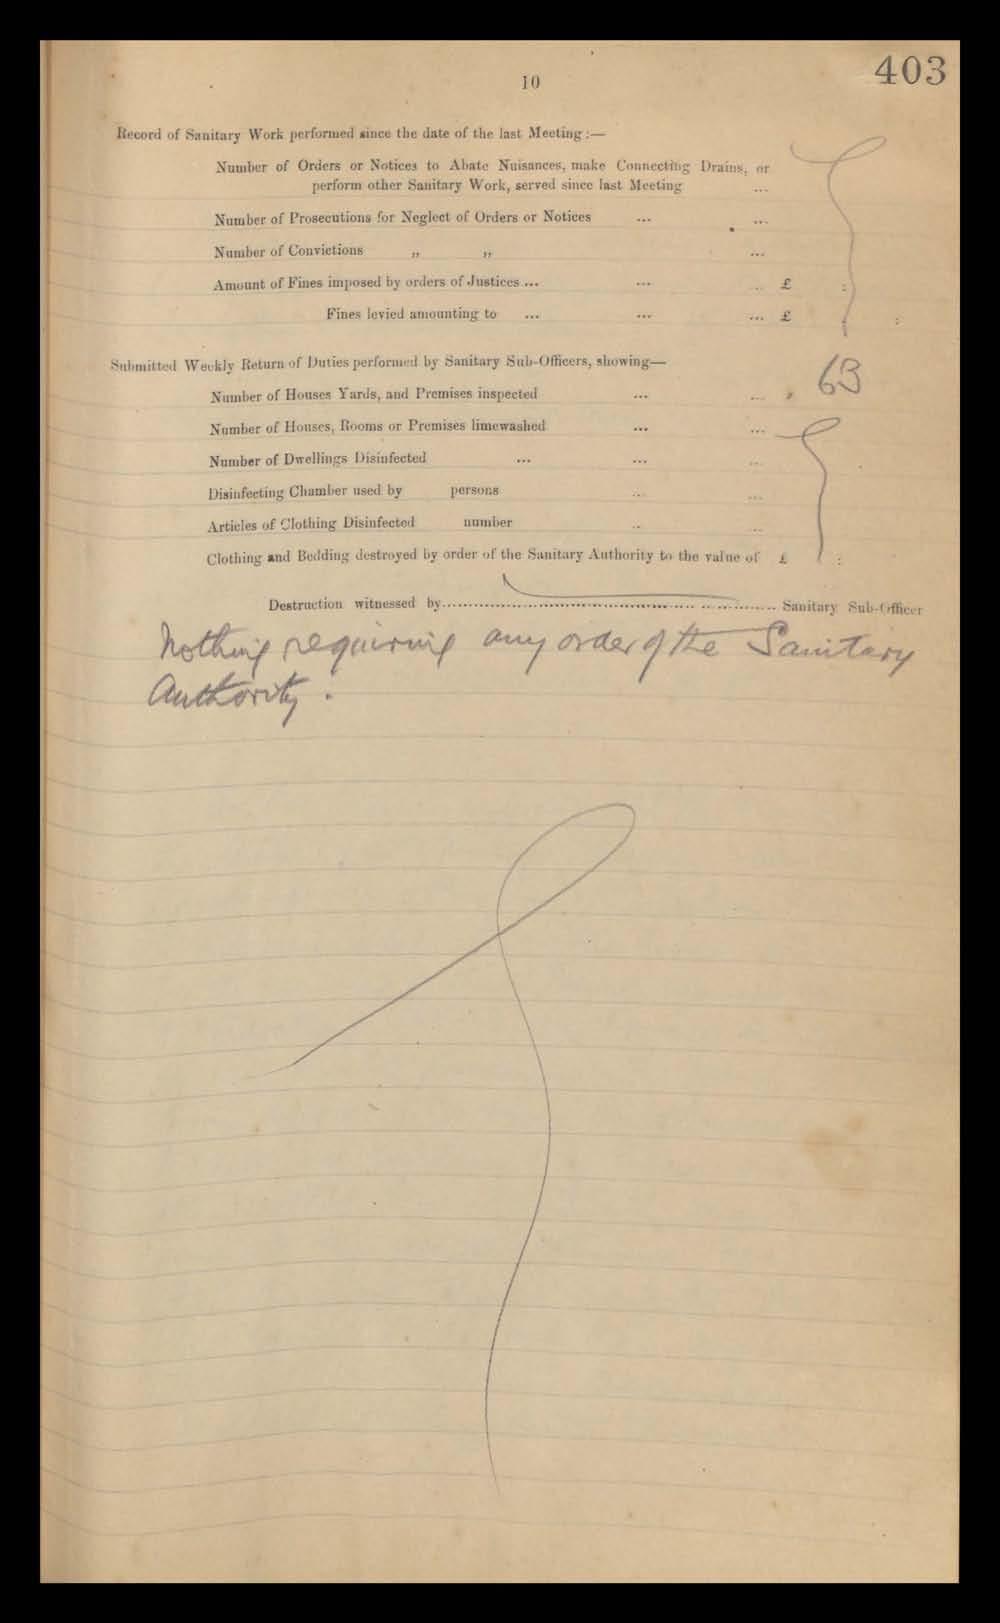 403
10
Record of Sanitary Work performed since the date of the last Meeting :—
Number of Orders or Notices to Abate Nuisances, make Connecting Drains, or
perform other Sanitary Work, served since last Meeting ...
Number of Prosecutions for Neglect of Orders or Notices ... ...
Number of Convictions „ „ ...
Amount of Fines imposed by orders of Justices ... ... ... £ :
Fines levied amounting to ... ... ... £ : :
Submitted Weekly Return of Duties performed by Sanitary Sub-Officers, showing—
Number of Houses Yards, and Premises inspected ... ... 63
Number of Houses, Rooms or Premises limewashed ... ...
Number of Dwellings Disinfected ... ... ...
Disinfecting Chamber used by persons ... ...
Articles of Clothing Disinfected number ... ...
Clothing and Bedding destroyed by order of the Sanitary Authority to the value of £ :
Destruction witnessed by........................ Sanitary Sub-Officer
Nothing requiring any order of the Sanitary
Authority.